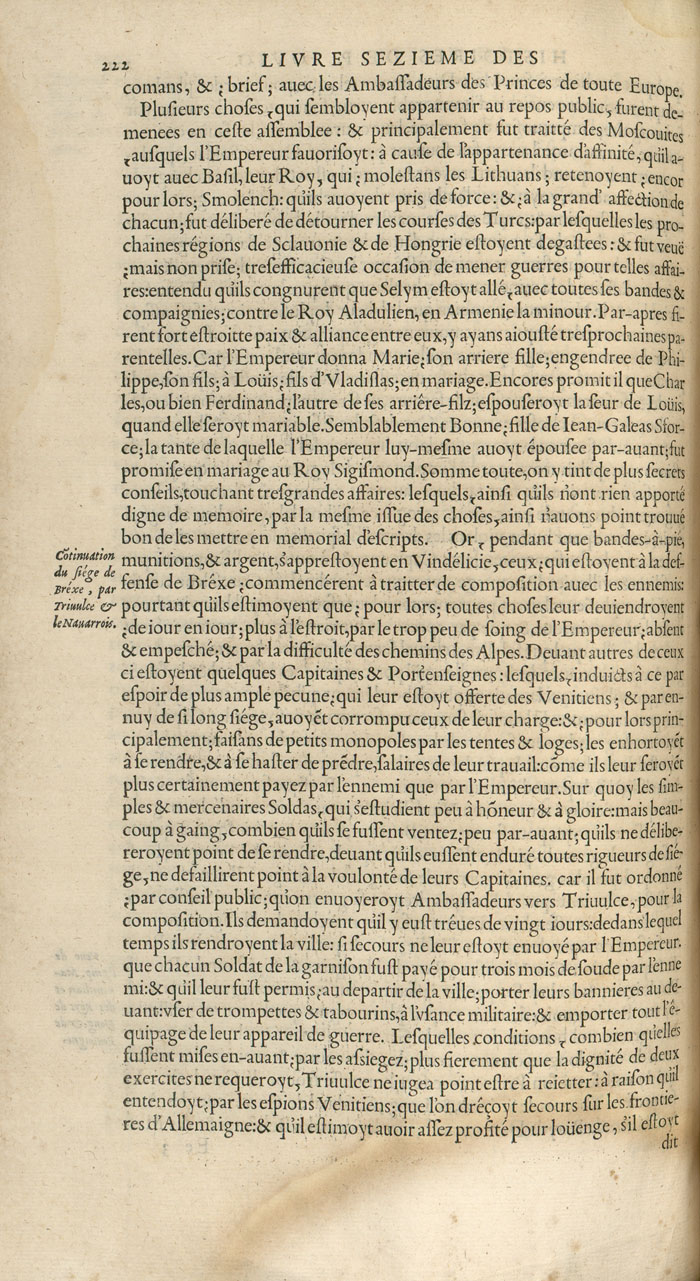 222 LIVRE SEZIEME DES
comans, & ; brief ; auec les Ambaſſadeurs des Princes de toute Europe.
Pluſieurs choſes, qui ſembloyent appartenir au repos public, furent de-
menees en ceſte aſſemblee : & principalement fut traitté des Moſcouites
, auſquels l'Empereur fauoriſoyt : à cauſe de l'appartenance d'affinité, qu'il a-
uoyt auec Baſil, leur Roy, qui ; moleſtans les Lithuans ; retenoyent ; encor
pour lors ; Smolench : qu'ils auoyent pris de force : & ; à la grand' affection de
chacun ; fut déliberé de détourner les courſes des Turcs : par leſquelles les pro-
chaines régions de Sclauonie & de Hongrie eſtoyent degaſtees : & fut veuë
; mais non priſe ; treſefficacieuſe occaſion de mener guerres pour telles affai-
res : entendu qu'ils congnurent que Selym eſtoyt allé, auec toutes ſes bandes &
compaignies ; contre le Roy Aladulien, en Armenie la minour. Par-apres fi-
rent fort eſtroitte paix & alliance entre eux, y ayans aiouſté treſprochaines pa-
rentelles. Car l'Empereur donna Marie ; ſon arriere fille ; engendree de Phi-
lippe, ſon fils ; à Loüis ; fils d'Vladiſlas ; en mariage. Encores promit il que Char
les, ou bien Ferdinand ; l'autre de ſes arriére-filz ; eſpouſeroyt la ſeur de Loüis,
quand elle ſeroyt mariable. Semblablement Bonne ; fille de Iean-Galeas Sfor-
ce ; la tante de laquelle l'Empereur luy-meſme auoyt épouſee par-auant ; fut
promiſe en mariage au Roy Sigiſmond. Somme toute, on y tint de plus ſecrets
conſeils, touchant treſgrandes affaires : leſquels, ainſi qu'ils n'ont rien apporté
digne de memoire, par la meſme iſſue des choſes, ainſi n'auons point trouué
bon de les mettre en memorial d'eſcripts. Or, pendant que bandes-à-pié,
munitions, & argent, s'appreſtoyent en Vindélicie, ceux ; qui eſtoyent à la def-
fenſe de Bréxe ; commencérent à traitter de compoſition auec les ennemis :
pourtant qu'ils eſtimoyent que ; pour lors ; toutes choſes leur deuiendroyent
; de iour en iour ; plus à l'eſtroit, par le trop peu de ſoing de l'Empereur ; abſent
& empeſché ; & par la difficulté des chemins des Alpes. Deuant autres de ceux
ci eſtoyent quelques Capitaines & Portenſeignes : leſquels, induicts à ce par
eſpoir de plus ample pecune ; qui leur eſtoyt offerte des Venitiens ; & par en-
nuy de ſi long ſiége, auoyẽt corrompu ceux de leur charge : & ; pour lors prin-
cipalement ; faiſans de petits monopoles par les tentes & loges ; les enhortoyẽt
à ſe rendre, & à ſe haſter de prẽdre, ſalaires de leur trauail : cõme ils leur ſeroyẽt
plus certainement payez par l'ennemi que par l'Empereur. Sur quoy les ſim-
ples & mercenaires Soldas, qui s'eſtudient peu à hõneur & à gloire : mais beau-
coup à gaing, combien qu'ils ſe fuſſent ventez ; peu par-auant ; qu'ils ne délibe-
reroyent point de ſe rendre, deuant qu'ils euſſent enduré toutes rigueurs de ſié-
ge, ne defaillirent point à la voulonté de leurs Capitaines. car il fut ordonné
; par conſeil public ; qu'on enuoyeroyt Ambaſſadeurs vers Triuulce, pour la
compoſition. Ils demandoyent qu'il y euſt tréues de vingt iours : dedans lequel
temps ils rendroyent la ville : ſi ſecours ne leur eſtoyt enuoyé par l'Empereur.
que chacun Soldat de la garniſon fuſt payé pour trois mois de ſoude par l'enne
mi : & qu'il leur fuſt permis ; au departir de la ville ; porter leurs bannieres au de-
uant : vſer de trompettes & tabourins, à l'vſance militaire : & emporter tout l'é-
quipage de leur appareil de guerre. Leſquelles conditions, combien qu'elles
fuſſent miſes en-auant ; par les aſsiegez ; plus fierement que la dignité de deux
exercites ne requeroyt, Triuulce ne iugea point eſtre à reietter : à raiſon qu'il
entendoyt ; par les eſpions Venitiens ; que l'on dréçoyt ſecours ſur les frontie-
res d'Allemaigne : & qu'il eſtimoyt auoir aſſez profité pour loüenge, s'il eſtoyt
dit
Cõtinuation
du ſiége de
Bréxe, par
Triuulce &
le Nauarrois.